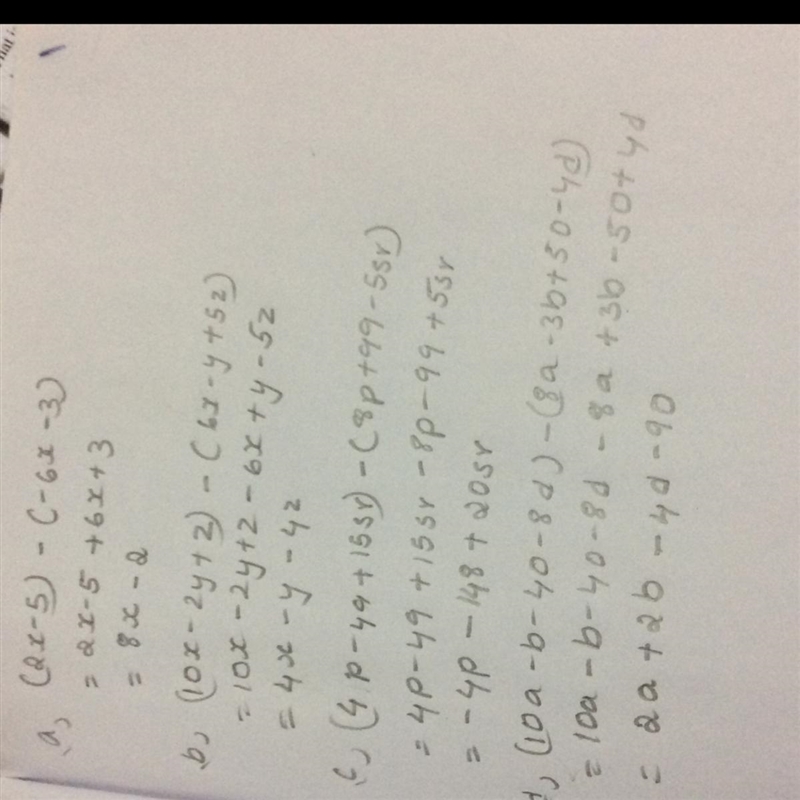 a) (2x-5) - (-6x-3)
= 2x-5 +6x+3
= 8x - 2
b) (10x-2y+z) - (6x-y+5z)
= 10x - 2y+z - 6x+y-5z
= 4x - y - 4z
c) (4p-49+15sr) - (8p+99-5sr)
= 4p-49 +15sr -8p-99+5sr
= -4p - 148 + 20sr
d) (10a-b-40-8d) - (8a-3b+50-4d)
= 10a-b-40-8d -8a +3b -50+4d
= 2a + 2b - 4d -90